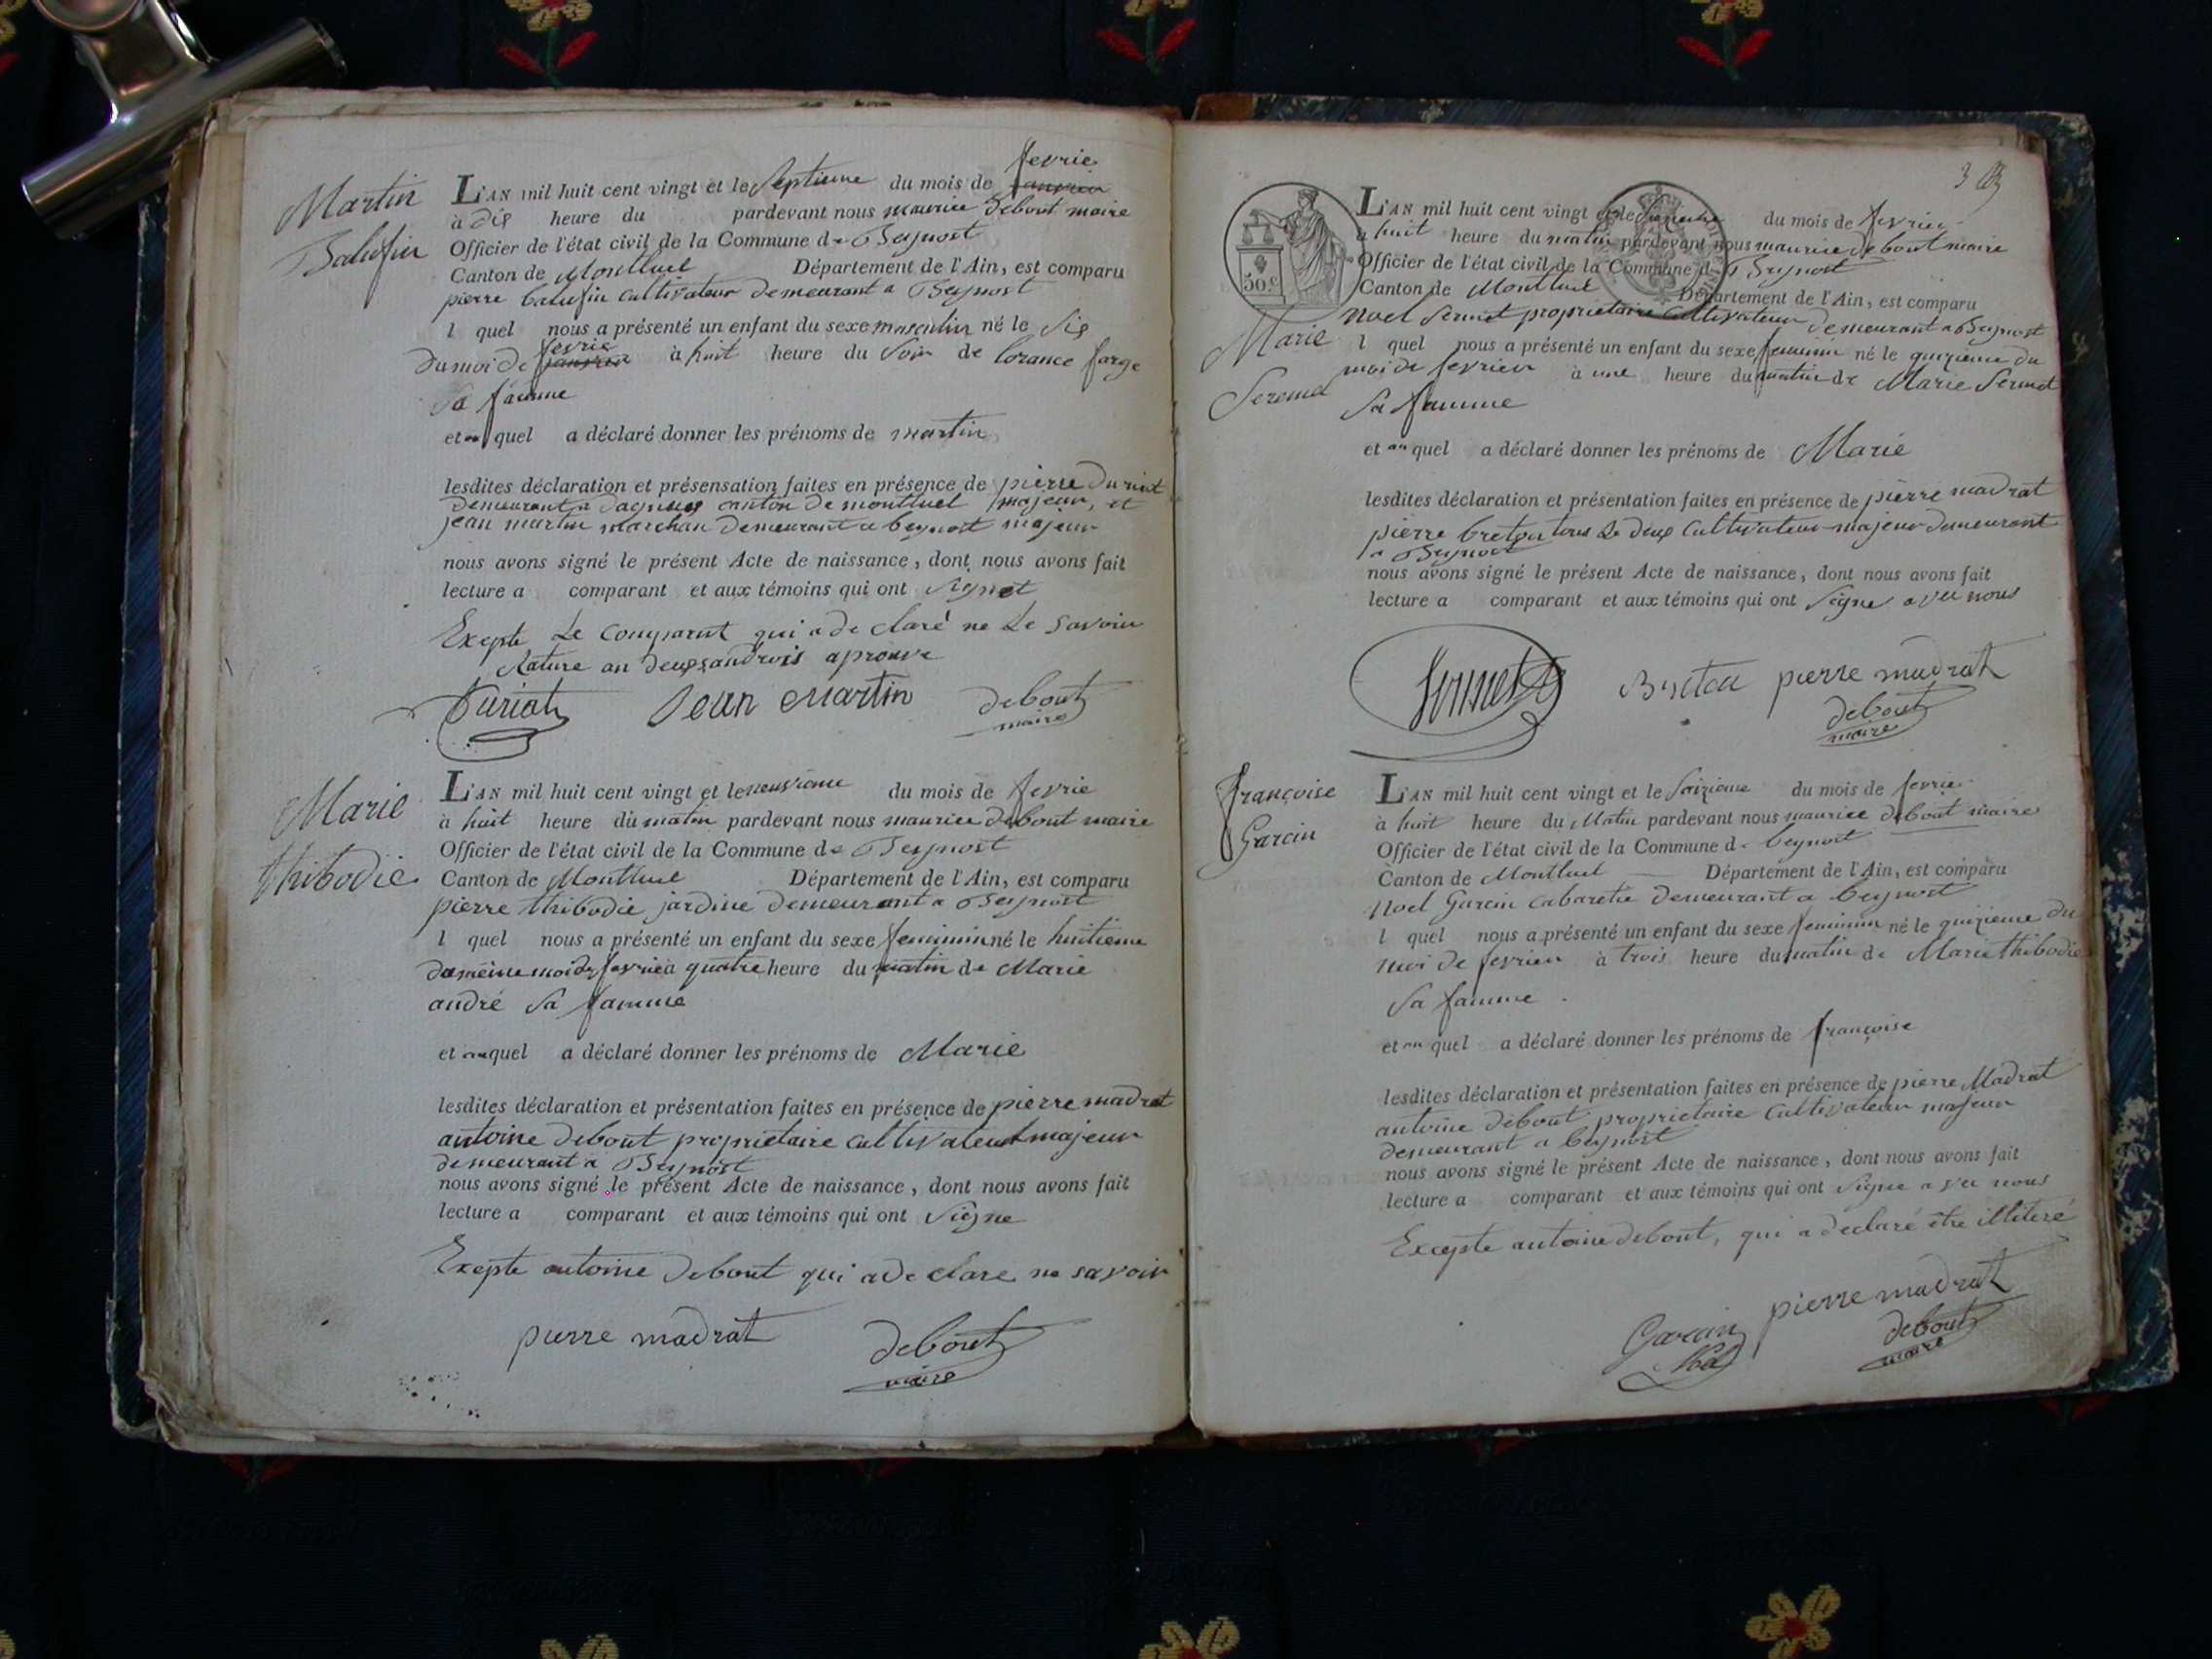 Martin
Balufin
fevrie
L'AN mil huit cent vingt et le Septieme du mois de janvier
à dis heure du pardevant nous maurice debout maire
Officier de l'état civil de la Commune de Beynost
Canton de Montluel Département de l'Ain, est comparu
pierre balufin cultivateur demeurant a Beynost
l quel nous a présenté un enfant du sexe masculin né le sis
fevrie
du moi de janvier à huit heure du soir de lorance farge
sa famme
et au quel a déclaré donner les prénoms de martin
lesdites déclaration et présensation faites en présence de pierre duriat
demeurant a dagnieux canton de montluel majeur, et
jean martin marchan demeurant a beynost majeur
nous avons signé le présent Acte de naissance, dont nous avons fait
lecture a comparant et aux témoins qui ont signet
Exepte Le Comparut qui a de claré ne Le savoir
Rature an deux androis aprouve
Duriat Jean Martin debout
maire
Marie
thibodie
L'AN mil huit cent vingt et le neuvieme du mois de fevrie
à huit heure du matin pardevant nous maurice debout maire
Officier de l'état civil de la Commune de Beynost
Canton de Montluel Département de l'Ain, est comparu
pierre thibodie jardine demeurant a Beynost
l quel nous a présenté un enfant du sexe feminin né le huitieme
du meme moi de fevrie à quatre heure du matin de Marie
andré sa famme
et au quel a déclaré donner les prénoms de Marie
lesdites déclaration et présentation faites en présence de pierre madrat
antoine debout proprietaire cultivateur majeur
demeurant a Beynost
nous avons signé le présent Acte de naissance, dont nous avons fait
lecture a comparant et aux témoins qui ont signe
Exepte antoine debout qui a de clare ne savoir
pierre madrat debout
maire
3
50.c
Marie
Sermet
L'AN mil huit cent vingt et le du mois de fevrier
à huit heure du matin pardevant nous maurice debout maire
Officier de l'état civil de la Commune d Beynost
Canton de Montluel Département de l'Ain, est comparu
Noel Sermet proprietaire cultivateur demeurant a Beynost
l quel nous a présenté un enfant du sexe feminin né le quizieme du
moi de fevrier à une heure du matin de Marie Sermet
Sa famme
et au quel a déclaré donner les prénoms de Marie
lesdites déclaration et présentation faites en présence de pierre madrat
pierre breton tous Le deux cultivateur majeur demeurant
a Beynost
nous avons signé le présent Acte de naissance, dont nous avons fait
lecture a comparant et aux témoins qui ont signe avec nous
Sermet Breton pierre madrat
debout
maire
françoise
Garcin
L'AN mil huit cent vingt et le Saizieme du mois de fevrie
à huit heure du Matin pardevant nous maurice debout maire
Officier de l'état civil de la Commune de beynost
Canton de Montluel Département de l'Ain, est comparu
Noel Garcin cabaretie demeurant a beynost
l quel nous a présenté un enfant du sexe feminin né le quizieme du
moi de fevrier à trois heure du matin de Marie thibodie
Sa famme
et au quel a déclaré donner les prénoms de françoise
lesdites déclaration et présentation faites en présence de pierre Madrat
antoine debout proprietaire cultivateur majeur
demeurant a beynost
nous avons signé le présent Acte de naissance, dont nous avons fait
lecture a comparant et aux témoins qui ont signe avec nous
Excepte antoine debout, qui a declaré être illiteré
Garcin pierre madrat
debout
maire